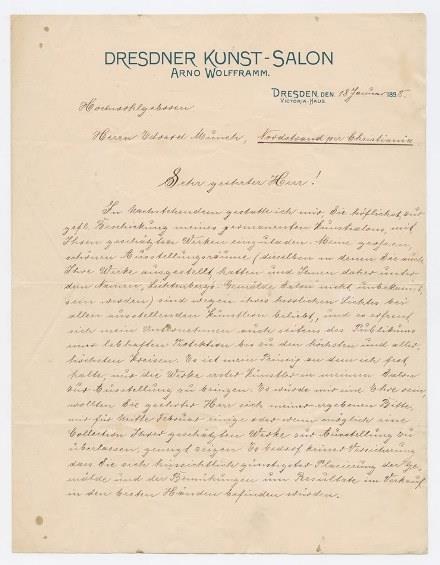 DRESDNER KUNST-SALON
ARNO WOLFFRAMM.
DRESDEN, DEN 18 Januar 1898.
VICTORIA-HAUS.
Hochwohlgeboren
Herrn Edvard Munch, Nordstrand per Christiania
Sehr geehrter Herr!
In Nachstehendem gestatte ich mir, Sie höflichst, zur
gefl. Beschickung meines permanenten Kunstsalons, mit
Ihren geschätzten Werken einzuladen. Meine grossen,
schönen Ausstellungsräume (dieselben in denen Sie auch
Ihre Werke ausgestellt hatten und Ihnen daher unter
dem Namen, Lichtenbergs Gemälde Salon nicht unbekannt
sein werden) sind wegen ihres Lichtes bei
allen ausstellenden Künstlern beliebt, und es erfreut
sich mein Unternehmen auch seitens des Publikums
einer lebhaften Protektion bis zu den höchsten und aller-
höchsten Kreisen. Es ist mein Prinzip an dem ich fest
halte, nur die Werke erster Künstler in meinem Salon
zur Ausstellung zu bringen. Es würde mir eine Ehre sein,
wollten Sie geehrter Herr sich meiner ergebenen Bitte,
mir für Mitte Februar einige oder wenn möglich eine
Collection Ihrer geschätzten Werke zur Ausstellung zu
überlassen, geneigt zeigen. Es bedarf keiner Versicherung
dass Sie sich hinsichtlich günstigster Placierung der Ge-
mälde und der Bemühungen um Resultate im Verkauf
in den besten Händen befinden würden.